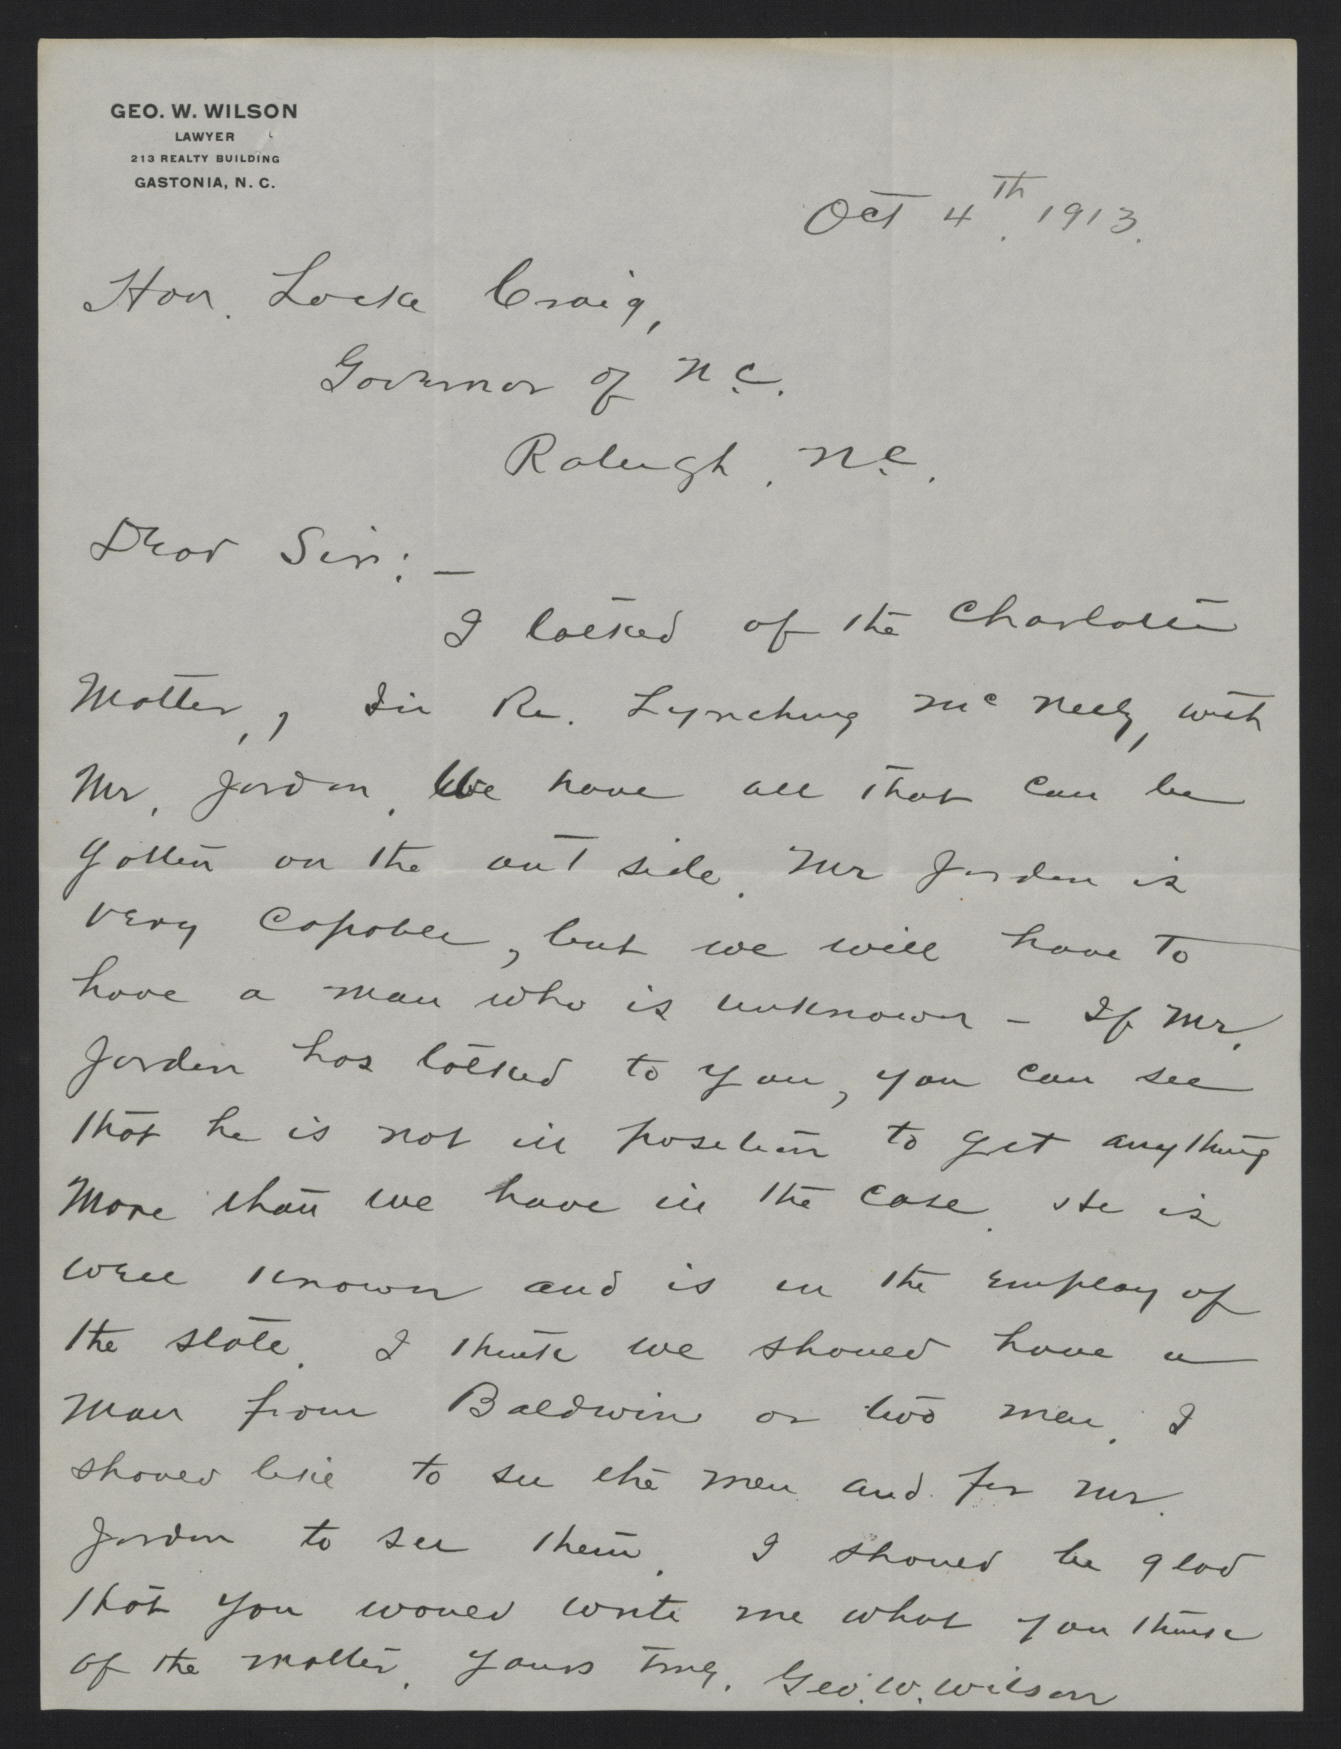 GEO. W. WILSON
LAWYER
213 REALTY BUILDING
GASTONIA, N. C.
Oct 4th, 1913.
Hon. Locke Craig,
Governor of N.C.
Raleigh, N.C.
Dear Sir: —
I talked of the Charlotte
Matter, In Re. Lynching McNeely, with
Mr. Jordan. We have all that can be
gotten on the out side. Mr Jordan is
very capable, but we will have to
have a man who is unknown – If Mr.
Jordan has talked to you, you can see
that he is not in position to get anything
more than we have in the case. He is
well known and is in the employ of
the state. I think we should have a
man from Baldwin or two men. I
should like to see the men and for Mr.
Jordan to see them. I should be glad
that you would write me what you think
of the matter. Yours truly, Geo. W. Wilson